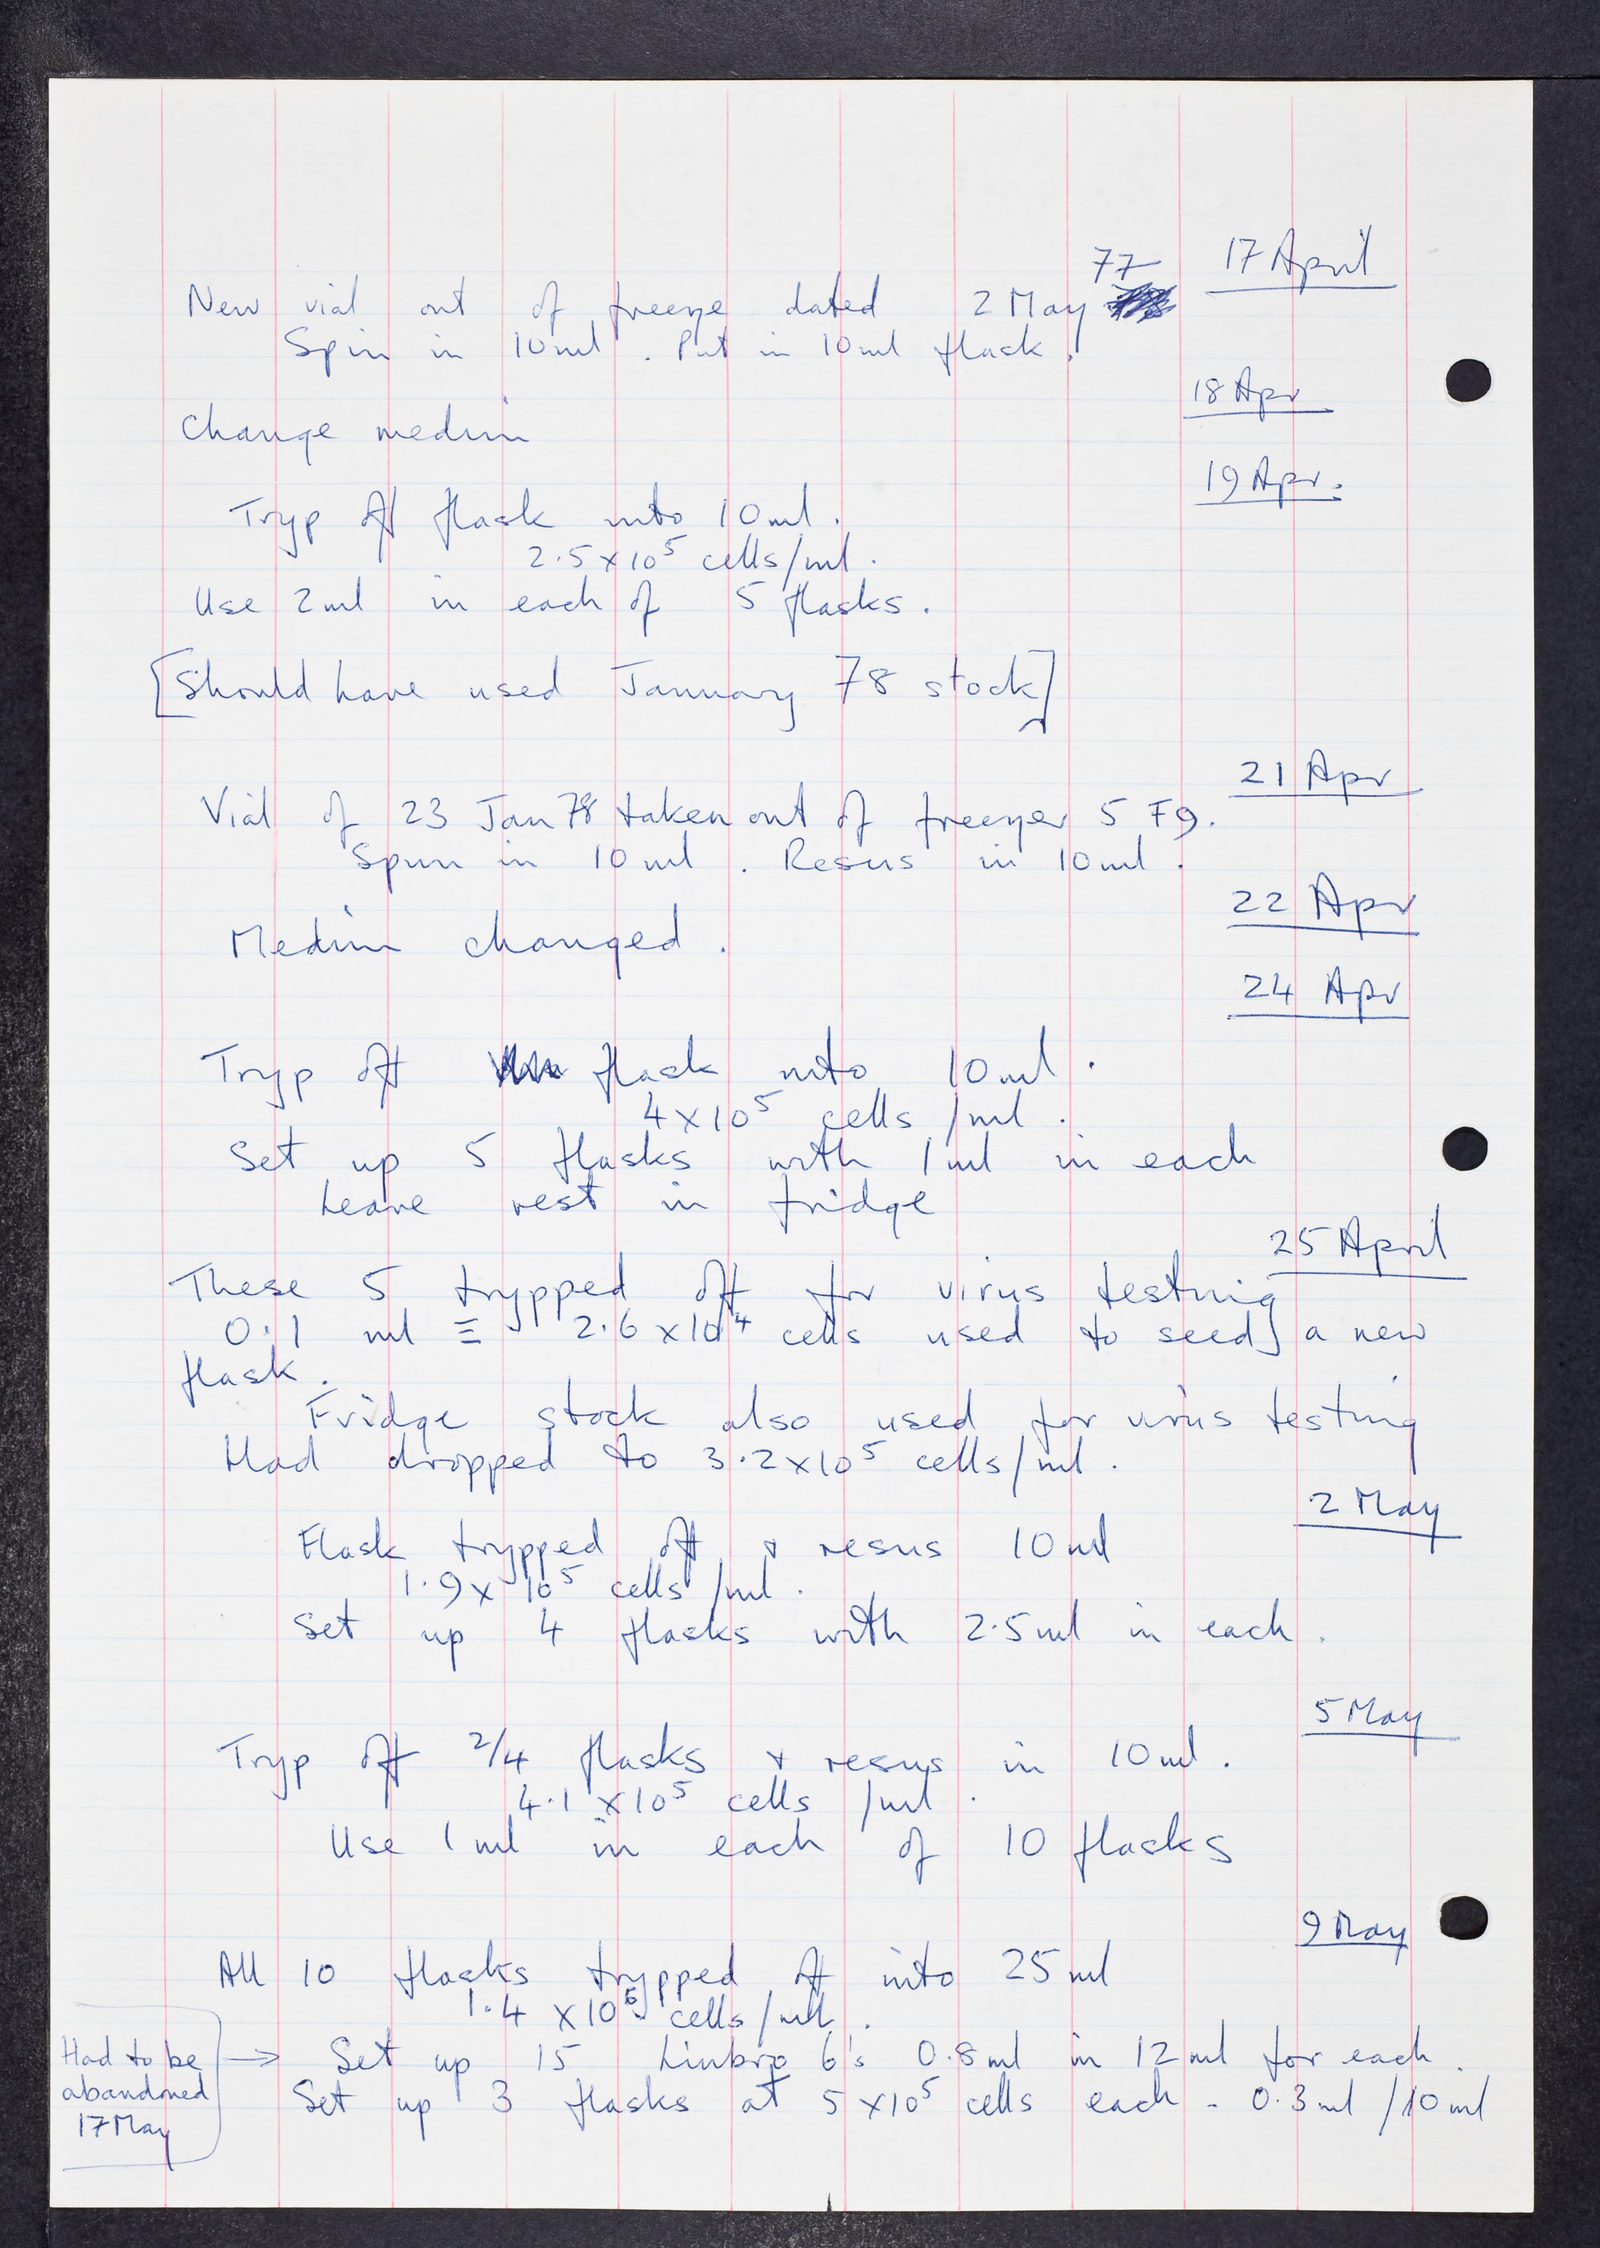 17 April
New vial out of freeze dated 2 May 77
Spin in 10ml. Put in 10ml flask.
18 Apr
Change medium
19 Apr.
Tryp off flask into 10ml.
2.5x10⁵ cells/ml.
Use 2ml in each of 5 flasks.
[Should have used January 78 stock]
21 Apr
Vial of 23 Jan 78 taken out of freezer 5 F9.
Spun in 10ml. Resus in 10ml.
22 Apr
Medium changed.
24 Apr
Tryp off flask into 10ml.
4x10⁵ cells/ml.
Set up 5 flasks with 1ml in each
Leave rest in fridge
25 April
These 5 trypped off for virus testing
0.1 ml ≡ 2.6x10⁴ cells used to seed a new
flask.
Fridge stock also used for virus testing
Had dropped to 3.2x10⁵ cells/ml.
2 May
Flask trypped off & resus 10ml
1.9x10⁵ cells/ml.
Set up 4 flasks with 2.5ml in each.
5 May
Tryp off 2/4 flasks & resus in 10ml.
4.1x10⁵ cells/ml.
Use 1ml in each of 10 flasks
9 May
All 10 flasks trypped off into 25ml
1.4x10⁶ cells/ml.
Had to be
abandoned
17 May
→ Set up 15 Linbro 6's 0.8ml in 12ml for each.
Set up 3 flasks at 5x10⁵ cells each - 0.3ml/10ml